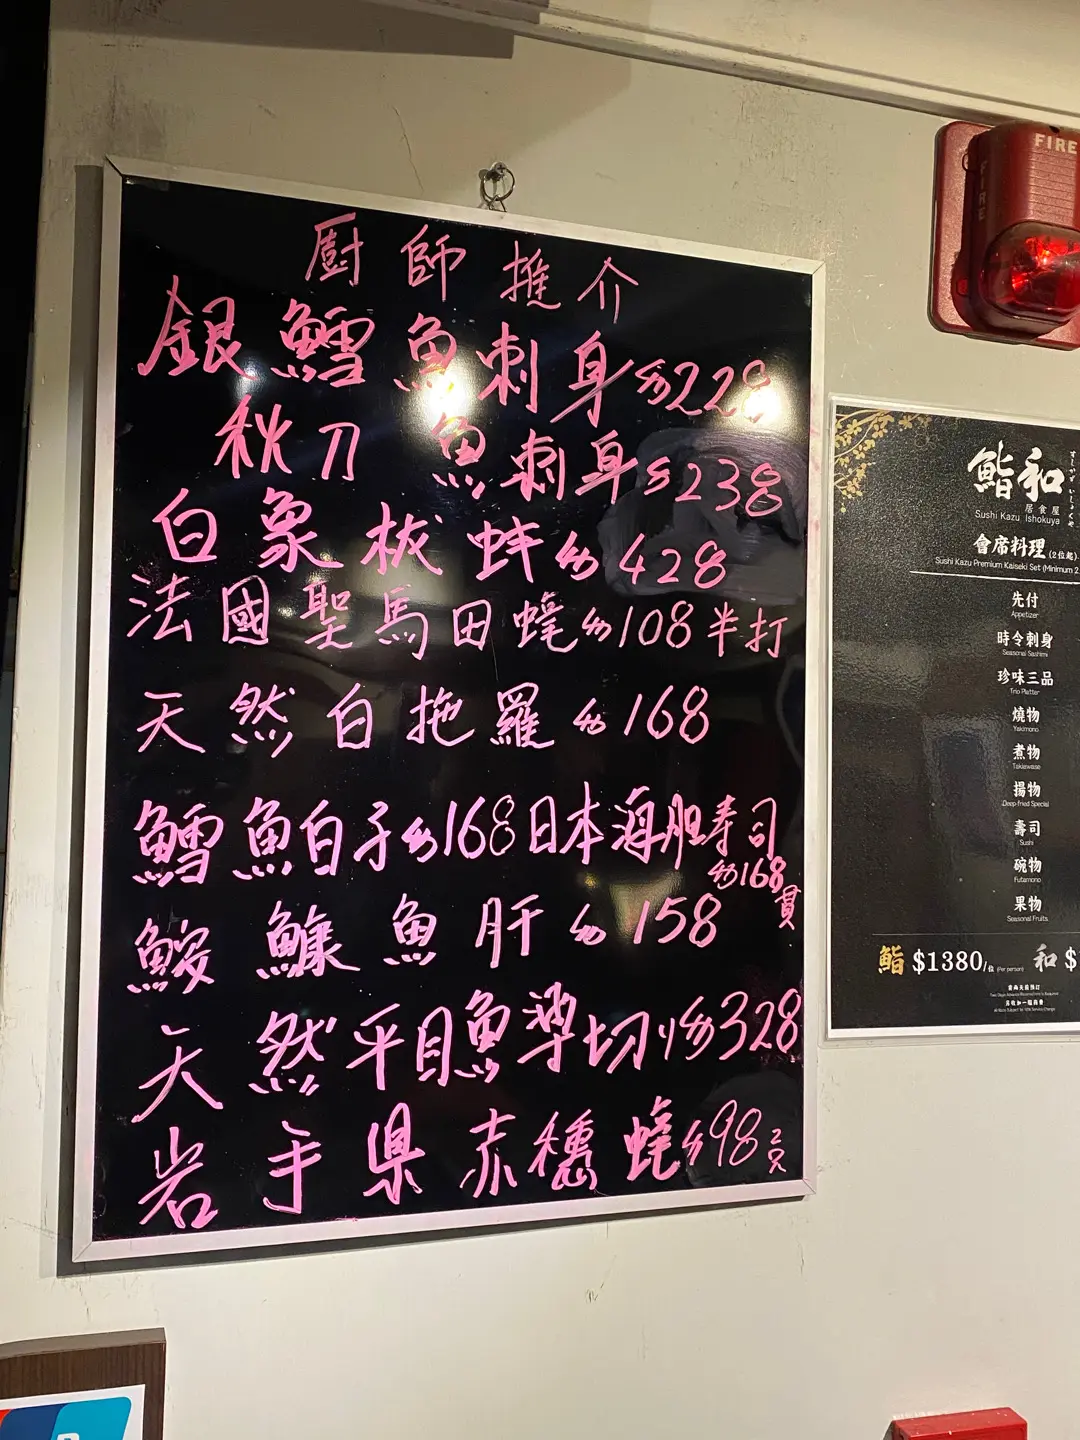 廚師推介
銀鱈魚刺身$228
秋刀魚刺身$238
白象拔蚌$428
法國聖馬田蠔$108半打
天然白拖羅$168
鱈魚白子$168日本海胆寿司
$168貫
鮟鱇魚肝$158
天然平目魚薄切り$328
岩手県赤穗蠔$98 2只
FIRE
FIRE
鮨和
すしかず いしょくや
居食屋
Sushi Kazu Ishokuya
會席料理(2位起)
Sushi Kazu Premium Kaiseki Set (Minimum 2
先付
Appetizer
時令刺身
Seasonal Sashimi
珍味三品
Trio Platter
燒物
Yakimono
煮物
Takiawase
揚物
Deep-fried Special
壽司
Sushi
碗物
Futamono
果物
Seasonal Fruits
鮨 $1380/位 (Per person) 和 $